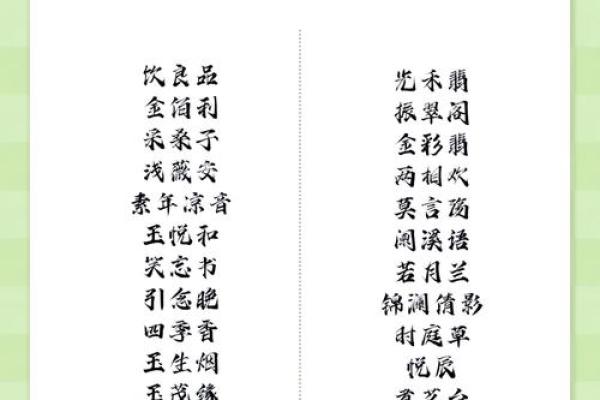 饮良品
金佰利
采桑子
浅薇安
素年凉音
玉悦和
笑忘书
引念晚
四季香
玉生烟
玉茂缘
光禾翡
振翠阁
金彩翡
两相欢
莫言殇
阑溪语
若月兰
锦澜倩影
时庭草
悦辰